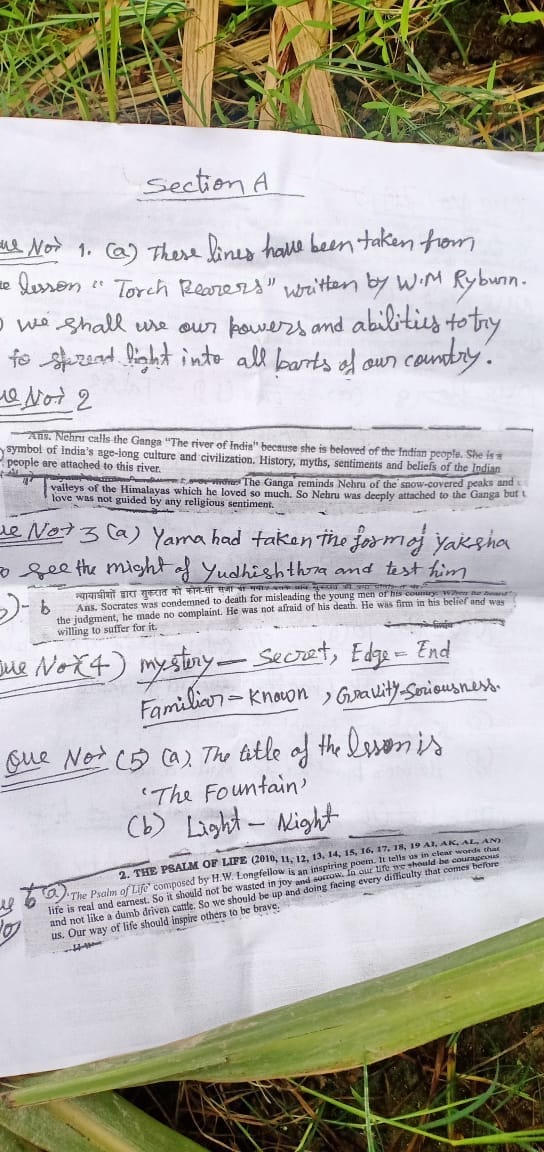 Section A
Que No> 1. (a) These lines have been taken from
lesson " Torch Bearers" written by W.M Ryburn.
we shall use our powers and abilities to try
to spread light into all parts of our country.
Que No> 2
Ans. Nehru calls the Ganga "The river of India" because she is beloved of the Indian people. She is a
symbol of India's age-long culture and civilization. History, myths, sentiments and beliefs of the Indian
people are attached to this river.
The Ganga reminds Nehru of the snow-covered peaks and
valleys of the Himalayas which he loved so much. So Nehru was deeply attached to the Ganga but
love was not guided by any religious sentiment.
Que No> 3 (a) Yama had taken the form of yaksha
to see the might of Yudhishthra and test him
न्यायाधीशों द्वारा सुकरात को कौन-सी सजा
b Ans. Socrates was condemned to death for misleading the young men of his country. When he heard
the judgment, he made no complaint. He was not afraid of his death. He was firm in his belief and was
willing to suffer for it.
Que No> (4) mystery – Secret, Edge = End
Familiar = Known , Gravity-Seriousness.
Que No> (5) (a). The title of the lesson is
'The Fountain'
(b) Light – Night
2. THE PSALM OF LIFE (2010, 11, 12, 13, 14, 15, 16, 17, 18, 19 AI, AK, AL, AN)
6 (a) 'The Psalm of Life' composed by H.W. Longfellow is an inspiring poem. It tells us in clear words that
life is real and earnest. So it should not be wasted in joy and sorrow. In our life we should be courageous
and not like a dumb driven cattle. So we should be up and doing facing every difficulty that comes before
us. Our way of life should inspire others to be brave.